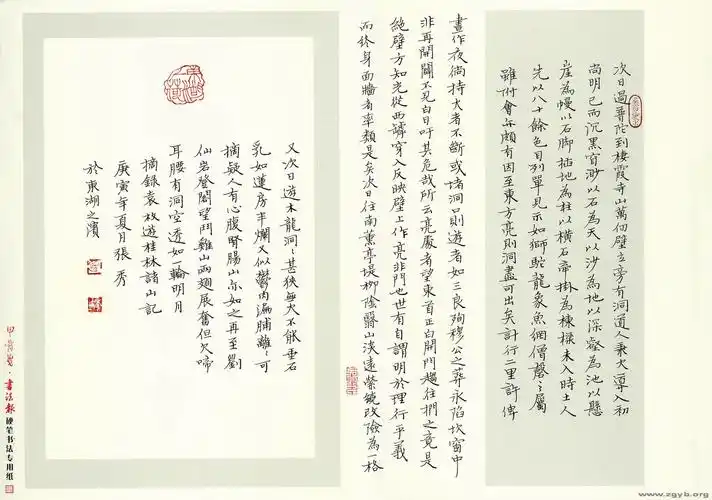 次日過普陀到棲霞寺山萬仞壁立旁有洞道人秉火導入初
尚明已而沉黑窅渺以石為天以沙為地以深壑為池以懸
崖為幔以石腳插地為柱以橫石帘掛為棟樑未入時土人
先以八十餘色目列單見示如獅駝龍象魚網僧磬之屬
雖附會亦頗有因至東方亮則洞盡可出矣計行二里許俾
晝作夜倘持火者不斷或堵洞口則遊者如三良殉穆公之葬永陷坎窞中
非再開闢不見白日吁其危哉所云亮處者望東首正白開門趨往捫之竟是
絕壁方知光從西罅穿入反映壁上作亮非門也世有自謂明於理行乎義
而終身面牆者率類是矣次日往南薰亭堤柳陰翳山淡遠縈繞改險為一格
又次日遊木龍洞洞甚狹無火不能垂石
乳如蓮房半爛又似鬱肉漏脯離離可
摘疑人有心腹腎腸山亦如之再至劉
仙岩登閣望鬥雞山兩翅展奮但欠啼
耳腰有洞空透如一輪明月
摘錄袁枚遊桂林諸山記
庚寅年夏月張秀
於東湖之濱
書法報
硬笔书法专用纸
www.zgyb.org